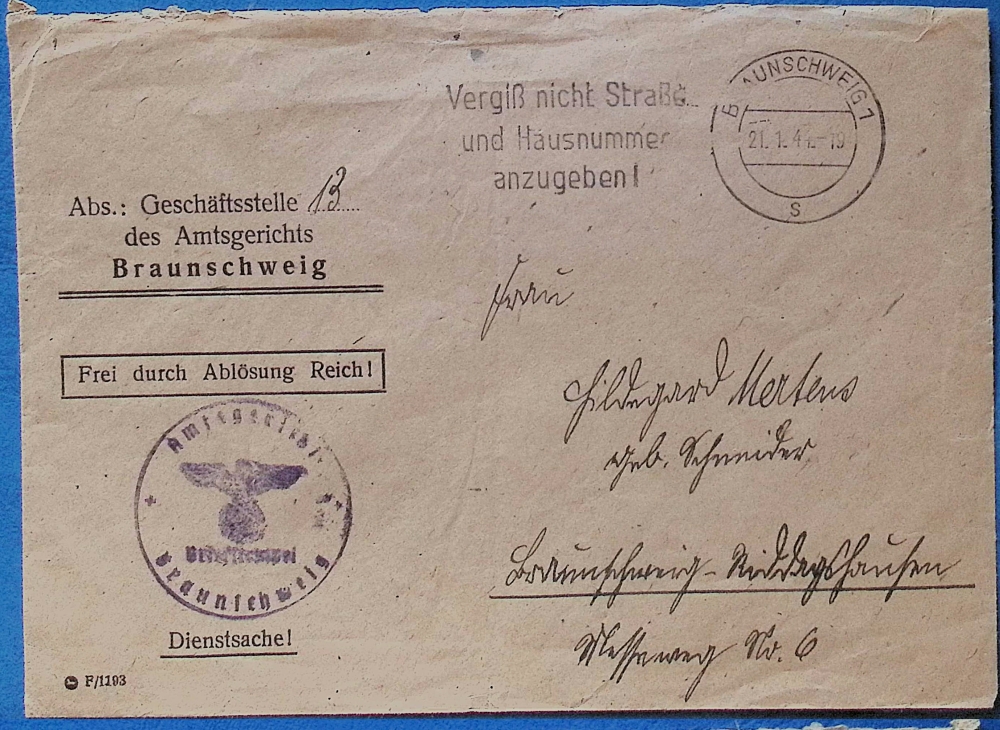 Vergiß nicht Straße
und Hausnummer
anzugeben!
BRAUNSCHWEIG 1
21.1.44.-19
s
Abs.: Geschäftsstelle 13
des Amtsgerichts
Braunschweig
Frei durch Ablösung Reich!
Amtsgericht
Briefstempel
Braunschweig
Dienstsache!
F/1193
Frau
Hildegard Mertens
geb. Schneider
Braunschweig-Riddagshausen
Messeweg No. 6